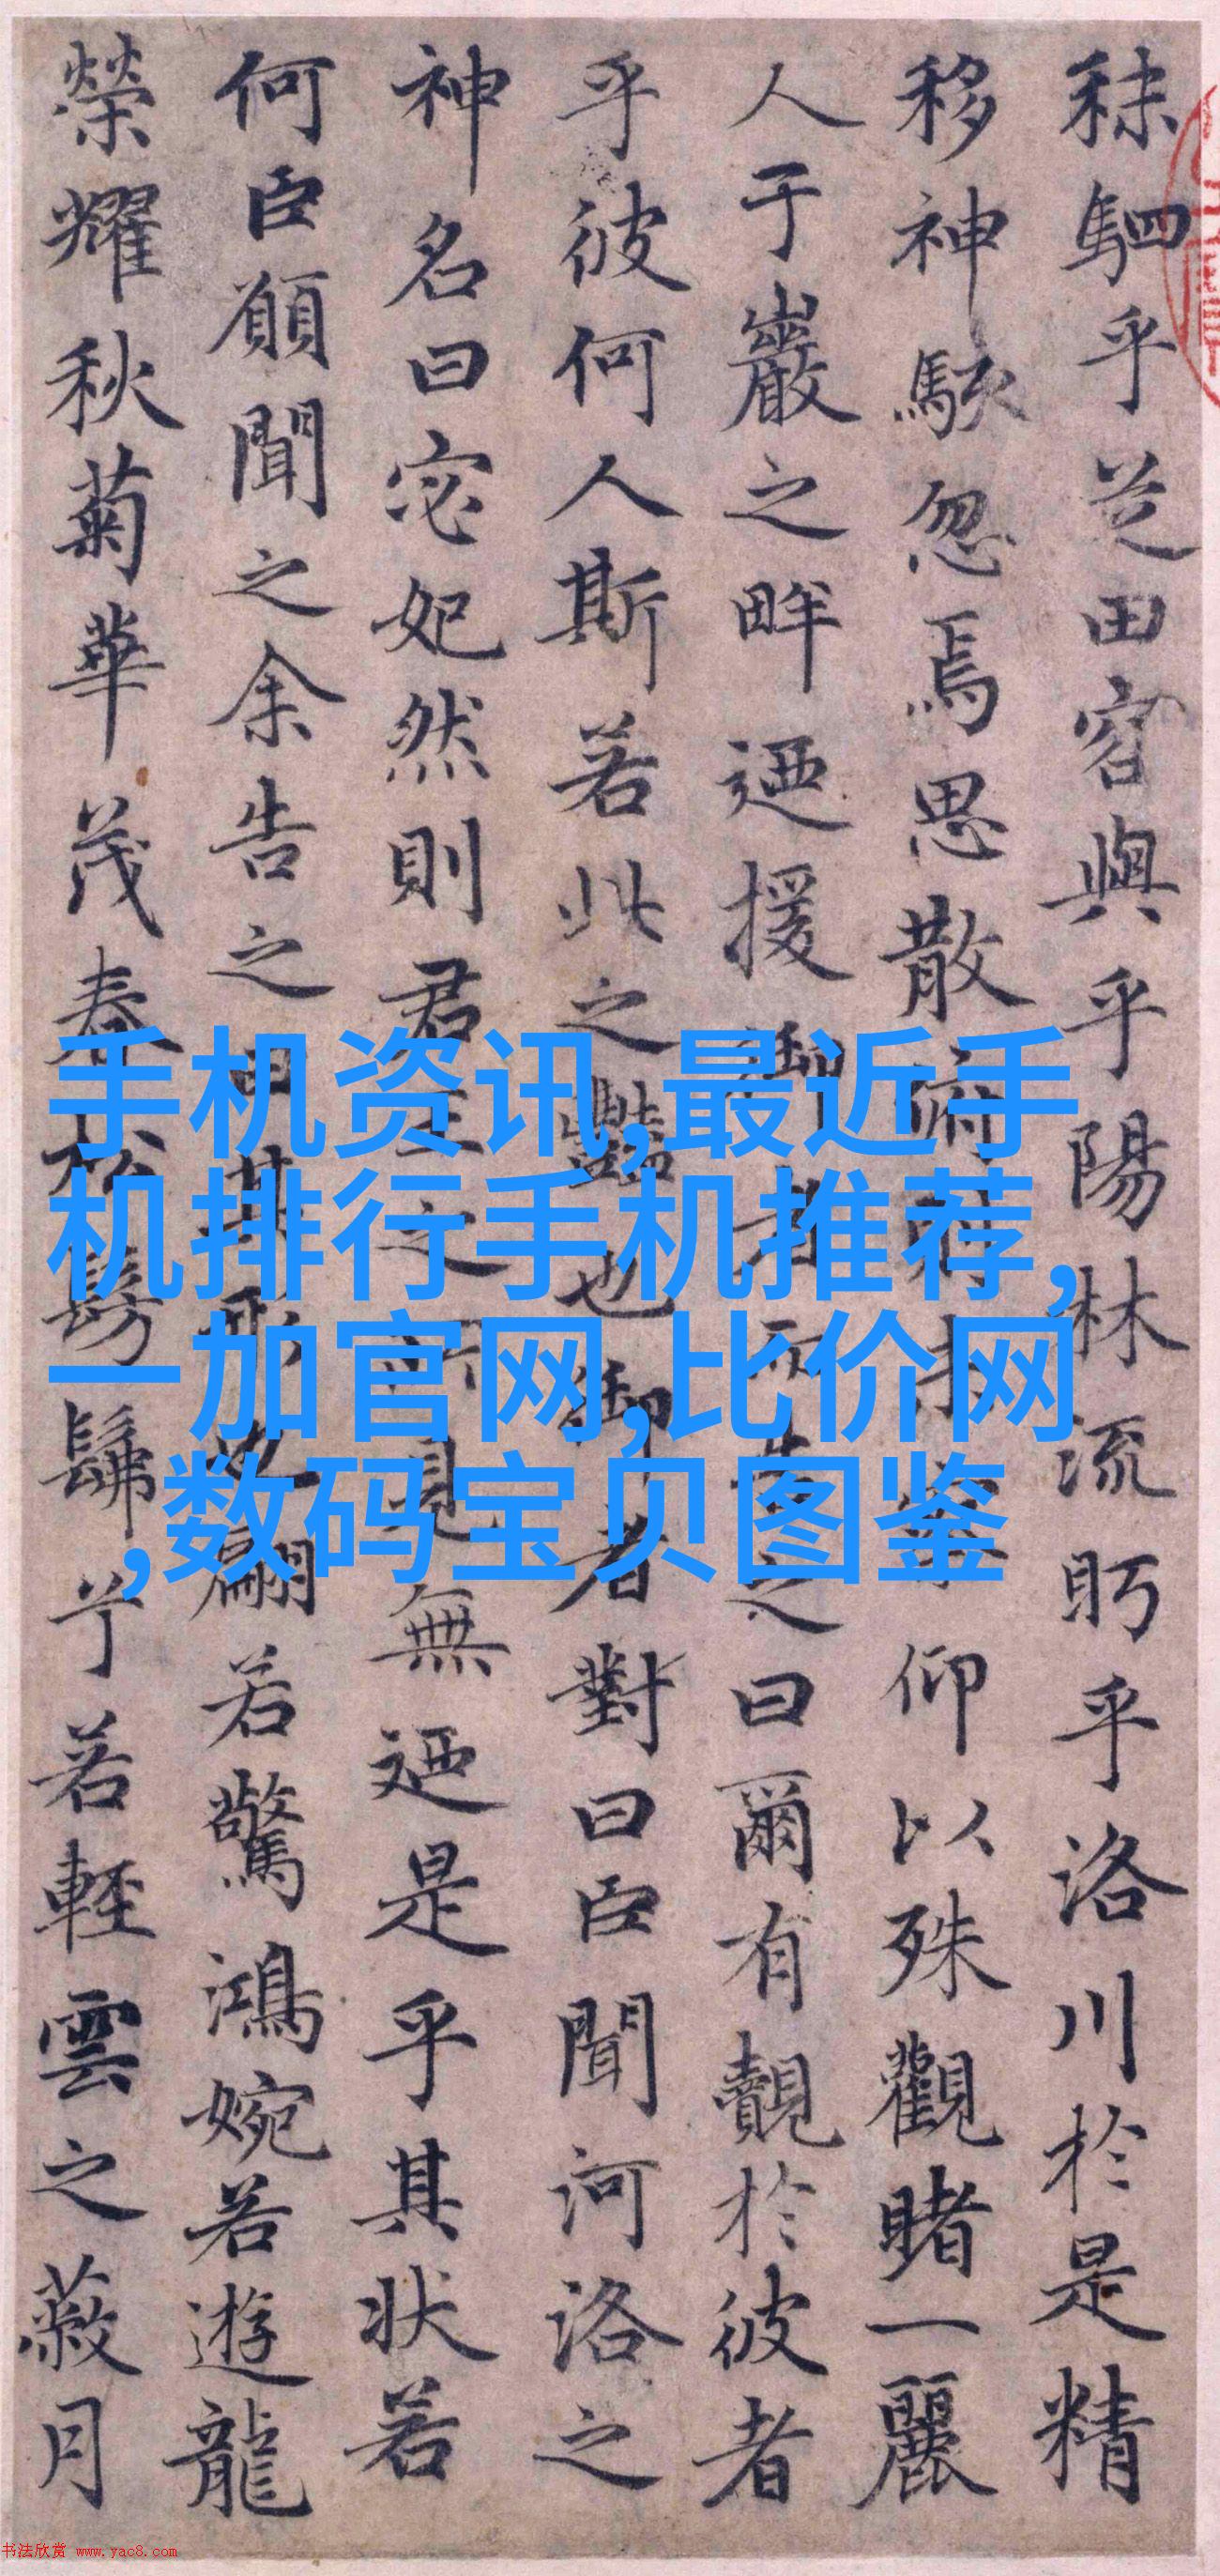 秣駟乎芝田容與乎陽林流眄乎洛川於是精
移神駭忽焉思散俯則未察仰以殊觀睹一麗
人于巖之畔迺援御者而告之曰爾有覿於彼者
乎彼何人斯若此之豔也御者對曰臣聞河洛之
神名曰宓妃然則君王之所見無迺是乎其狀若
何臣願聞之余告之曰其形也翩若驚鴻婉若遊龍
榮耀秋菊華茂春松髣髴兮若輕雲之蔽月
手机资讯,最近手
机排行手机推荐,
一加官网,比价网
,数码宝贝图鉴
书法欣赏 www.yac8.com